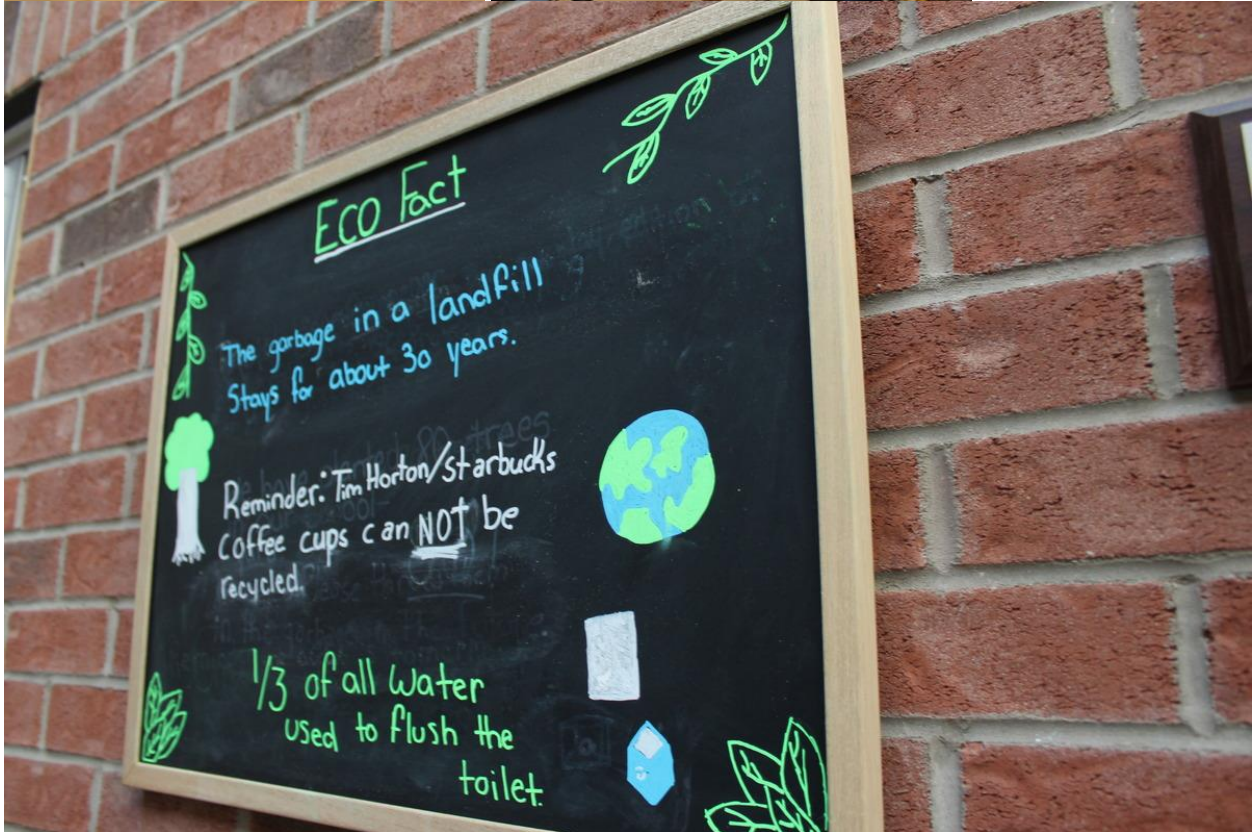 Eco Fact
The garbage in a landfill
Stays for about 30 years.
Reminder: Tim Horton/Starbucks
Coffee cups can NOT be
recycled.
1/3 of all water
used to flush the
toilet.